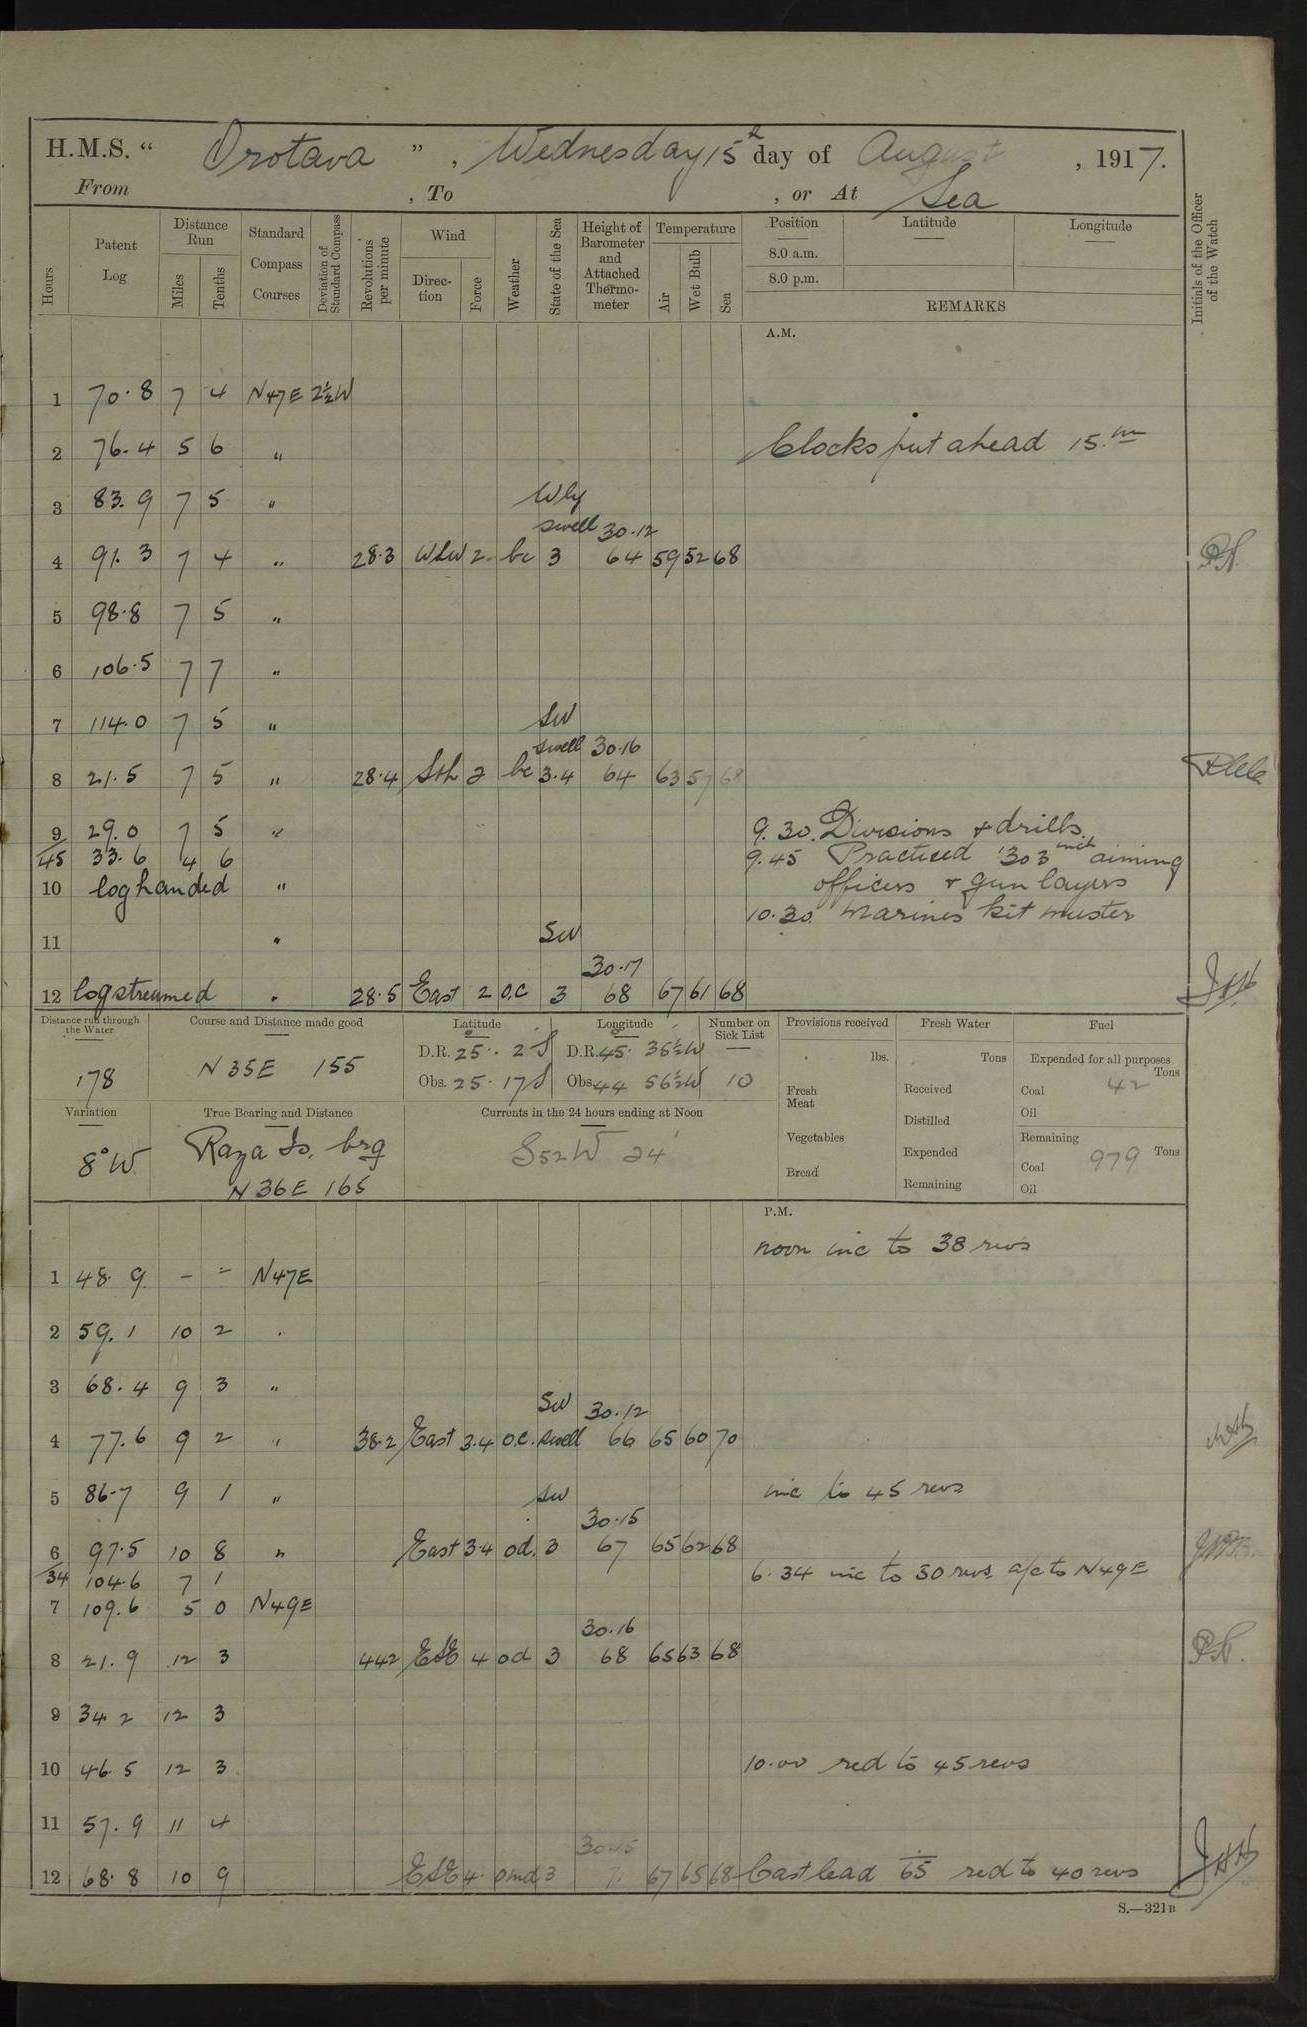 H.M.S. “ Orotava ” , Wednesday 15th day of August , 1917.
From , To , or At Sea
Hours
Patent Log
Distance Run
Miles
Tenths
Standard Compass Courses
Deviation of Standard Compass
Revolutions per minute
Wind
Direction
Force
Weather
State of the Sea
Height of Barometer and Attached Thermometer
Temperature
Air
Wet Bulb
Sea
Position
Latitude
Longitude
8.0 a.m.
8.0 p.m.
REMARKS
Initials of the Officer of the Watch
A.M.
1 70.8 7 4 N47E 2½W
2 76.4 5 6 " Clocks put ahead 15.m
3 83.9 7 5 " Wly
swell 30.12
4 91.3 7 4 " 28.3 WSW 2 bc 3 64 59 52 68
5 98.8 7 5 "
6 106.5 7 7 "
7 114.0 7 5 " SW
swell 30.16
8 21.5 7 5 " 28.4 Sth 2 bc 3.4 64 63 57 68
9 29.0 7 5 " 9.30. Divisions & drills.
45 33.6 4 6 9.45 Practiced '303 inch aiming
10 log handed " officers & gun layers
10.30. Marines kit muster
11 " SW
30.17
12 log streamed " 28.5 East 2 o.c 3 68 67 61 68
Distance run through the Water
178
Course and Distance made good
N 35E 155
Latitude
D.R. 25. 2 S
Obs. 25. 17 S
Longitude
D.R. 45. 35½W
Obs. 44 56½W
Number on Sick List
10
Provisions received
lbs.
Fresh Meat
Vegetables
Bread
Fresh Water
Tons
Received
Distilled
Expended
Remaining
Fuel
Expended for all purposes
Tons
Coal 42
Oil
Remaining
Coal 979 Tons
Oil
Variation
8° W
True Bearing and Distance
Raza Is. brg
N 36E 165
Currents in the 24 hours ending at Noon
S52W 24'
P.M.
noon inc to 38 revs
1 48.9 - - N47E
2 59.1 10 2 "
3 68.4 9 3 "
SW 30.12
4 77.6 9 2 " 38.2 East 3.4 o.c. swell 66 65 60 70
5 86.7 9 1 " SW inc to 45 revs
30.15
6 97.5 10 8 " East 3.4 od. 3 67 65 62 68
34 104.6 7 1 6.34 inc to 50 revs a/c to N49E
7 109.6 5 0 N49E
30.16
8 21.9 12 3 442 ESE 4 od 3 68 65 63 68
9 34.2 12 3
10 46.5 12 3 10.00 red to 45 revs
11 57.9 11 4
30.15
12 68.8 10 9 ESE 4 omd 3 67 65 68 Cast lead 65 red to 40 revs
S.—321B